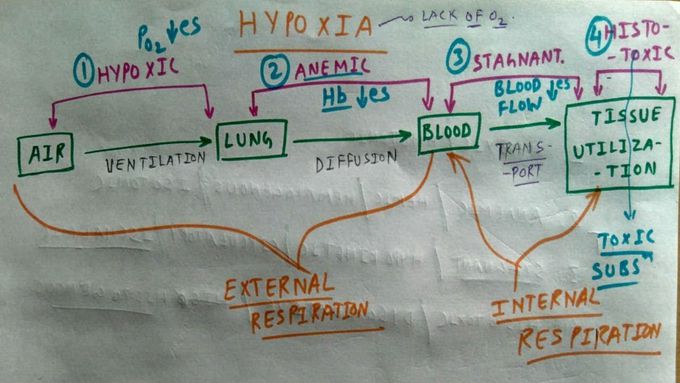 HYPOXIA
LACK OF O₂.
PO₂ ↓es
① HYPOXIC
② ANEMIC
Hb ↓es
③ STAGNANT.
BLOOD ↓es
FLOW
④ HISTO-
-TOXIC
AIR
VENTILATION
LUNG
DIFFUSION
BLOOD
TRANS-
-PORT
TISSUE
UTILIZA-
-TION
TOXIC
SUBSⁿ
EXTERNAL
RESPIRATION
INTERNAL
RESPIRATION